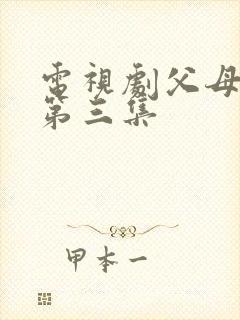 電視劇父母
第三集
甲本一